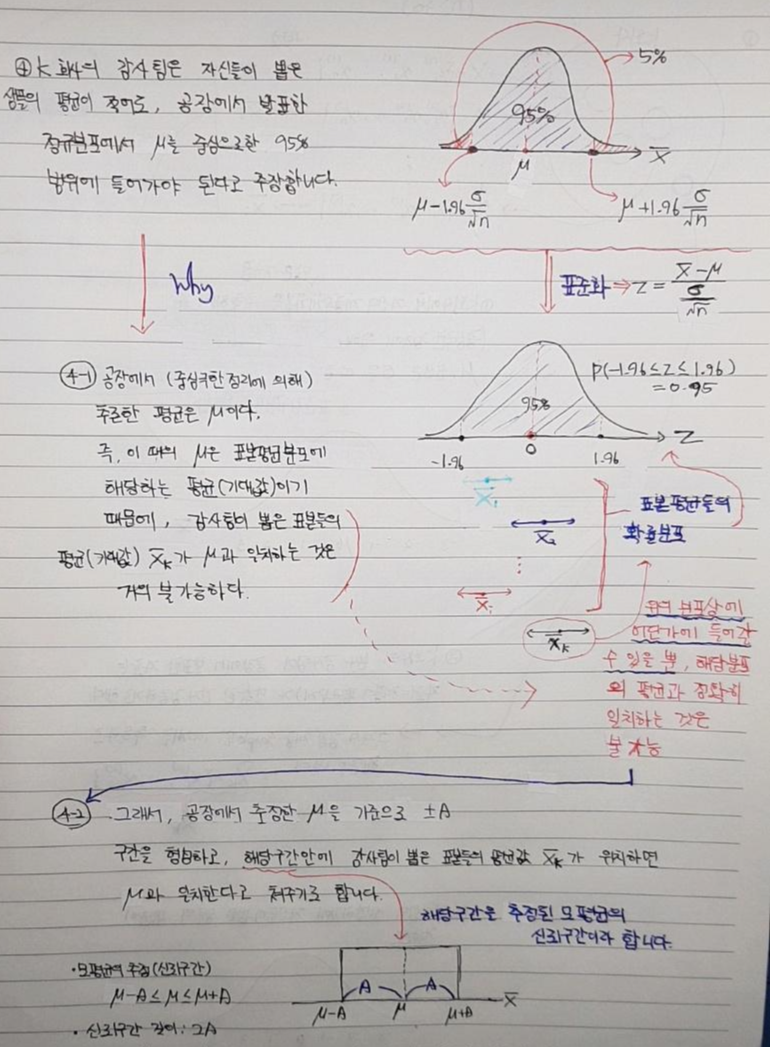 ④ k 회사의 감사팀은 자신들이 뽑은
샘플의 평균이 적어도, 공장에서 발표한
정규분포에서 μ를 중심으로한 95%
범위에 들어가야 된다고 주장합니다.
5%
95%
μ
X̄
μ-1.96 σ/√n
μ+1.96 σ/√n
Why
표준화 ⇒ Z = (X̄-μ)/(σ/√n)
④-1 공장에서 (중심극한정리에 의해)
추론한 평균은 μ이다.
즉, 이 때의 μ은 표본평균분포에
해당하는 평균(기대값)이기
때문에, 감사팀이 뽑은 표본들의
평균(기대값) X̄ₖ가 μ과 일치하는 것은
거의 불가능하다.
P(-1.96≤Z≤1.96)
=0.95
95%
-1.96
0
1.96
Z
X̄₁
X̄₂
⋮
X̄ᵢ
X̄ₖ
표본평균들의
확률분포
분포상에
어딘가에 들어갈
수 있을 뿐, 해당분포
의 평균과 정확히
일치하는 것은
불가능
④-2 그래서, 공장에서 추정한 μ을 기준으로 ±A
구간을 형성하고, 해당구간안에 감사팀이 뽑은 표본들의 평균값 X̄ₖ가 위치하면
μ과 일치한다고 쳐주기로 합니다.
해당구간을 추정된 모평균의
신뢰구간이라 합니다.
·모평균의 추정(신뢰구간)
μ-A≤μ≤μ+A
· 신뢰구간 길이: 2A
A
A
μ-A
μ
μ+A
X̄